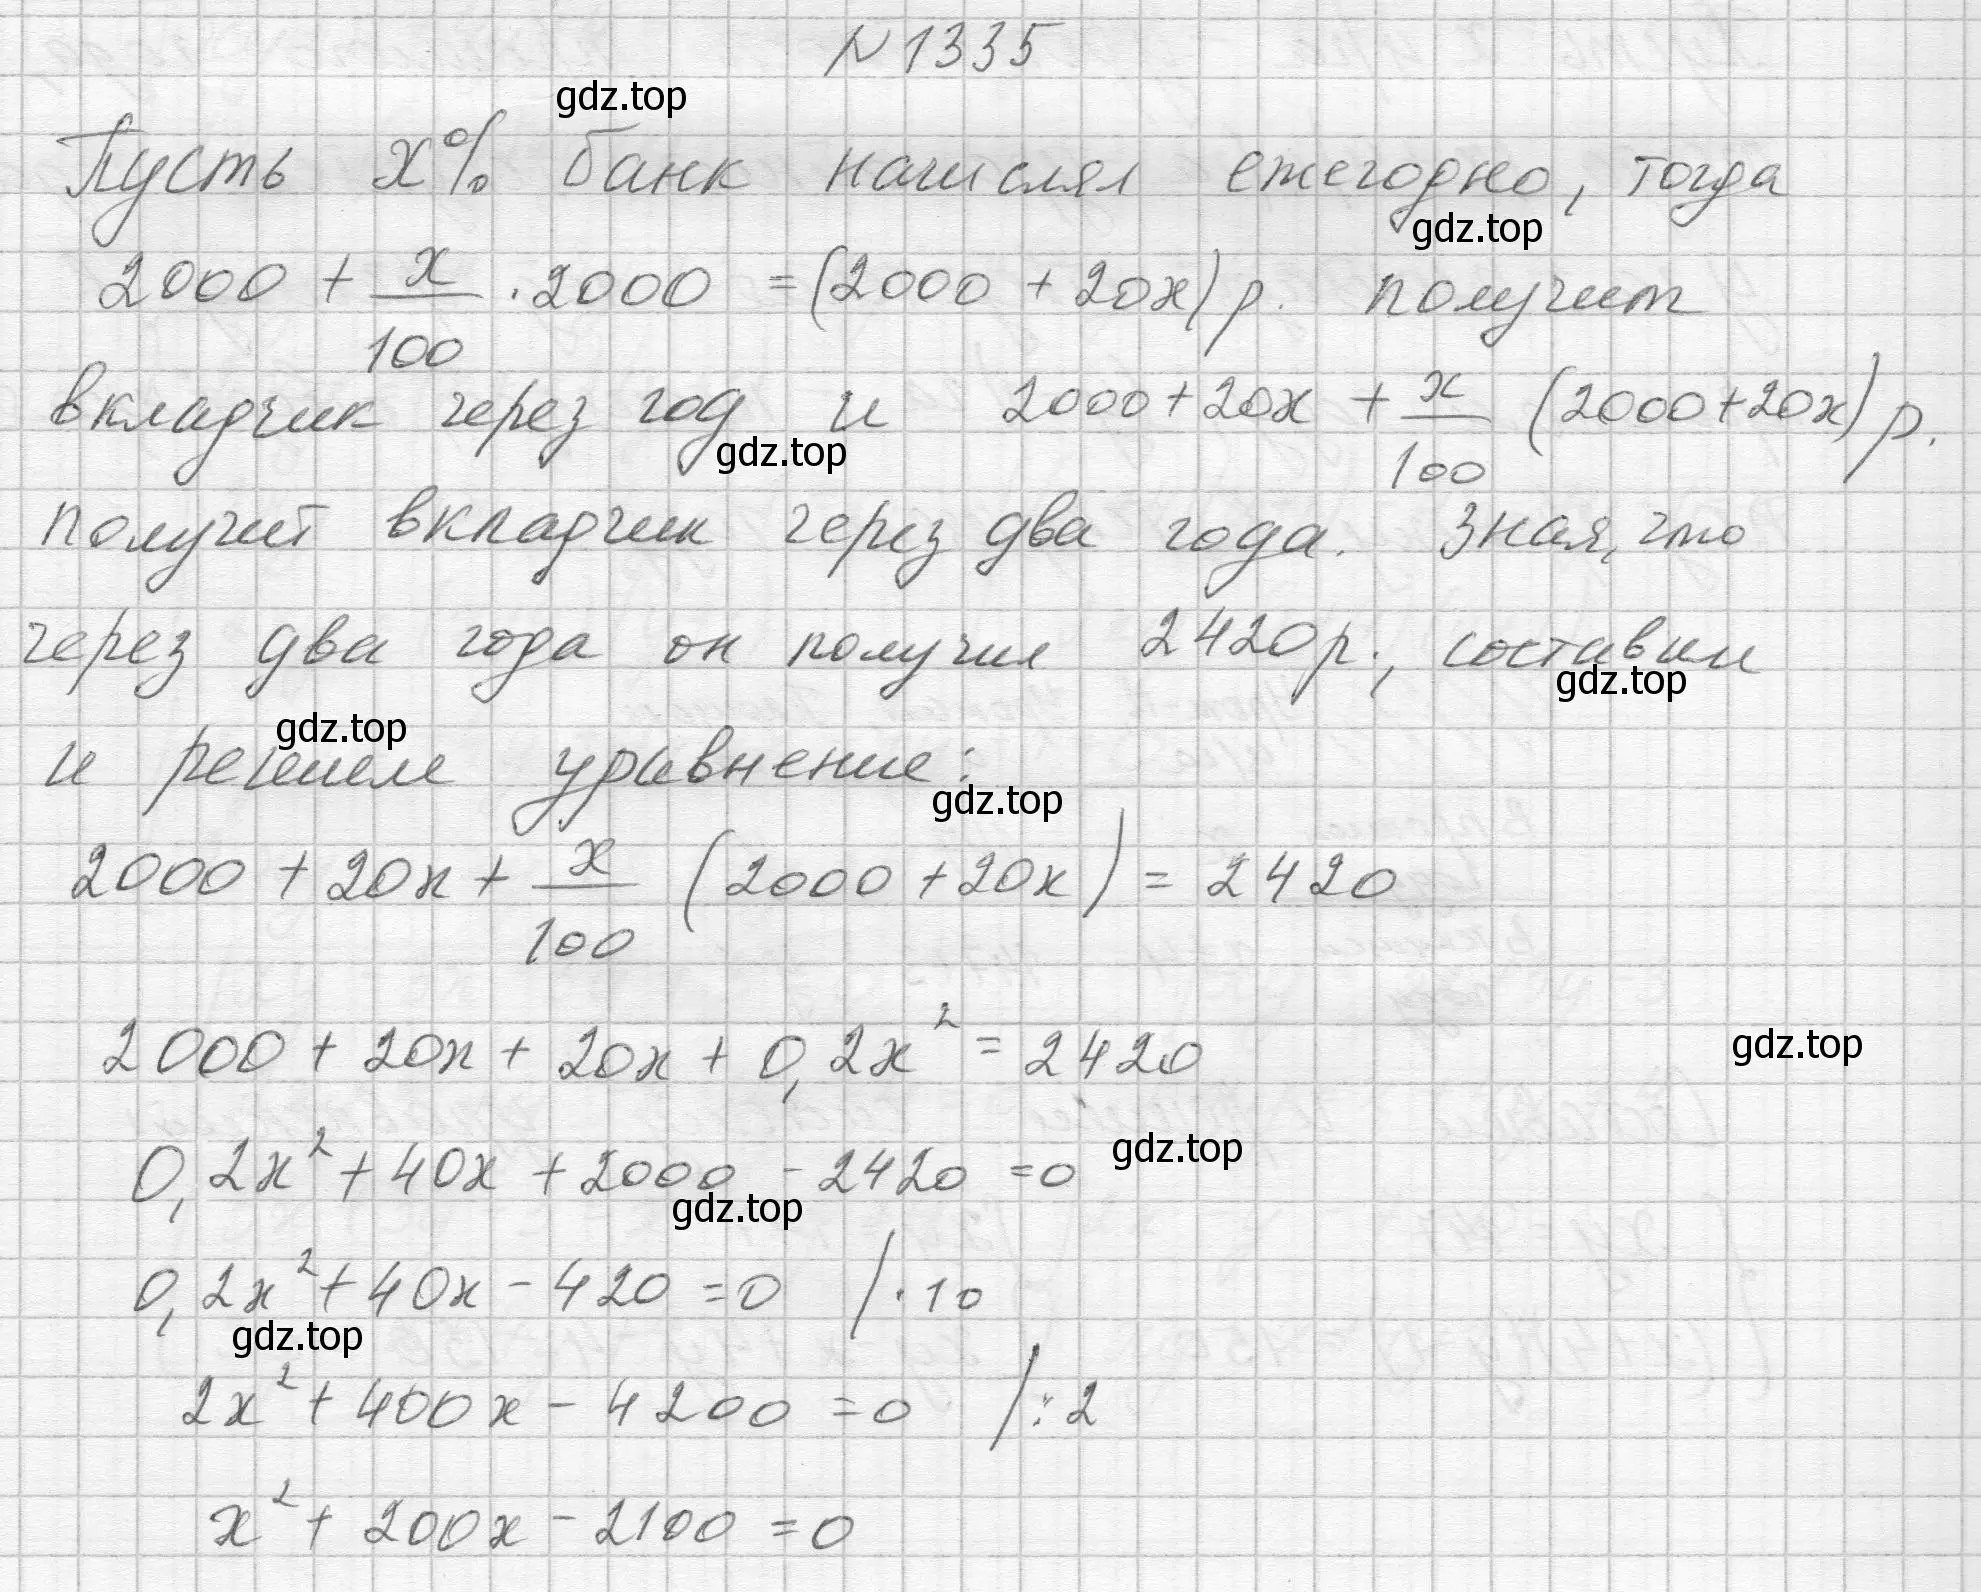 № 1335
gdz.top
Пусть x% банк начислял ежегодно, тогда
gdz.top
2000 + x/100 · 2000 = (2000 + 20x) р. получит
вкладчик через год и 2000 + 20x + x/100 (2000 + 20x) р.
gdz.top
получит вкладчик через два года. Зная, что
через два года он получил 2420 р., составим
gdz.top
gdz.top
и решим уравнение:
gdz.top
2000 + 20x + x/100 (2000 + 20x) = 2420
2000 + 20x + 20x + 0,2x² = 2420
gdz.top
0,2x² + 40x + 2000 - 2420 = 0
gdz.top
gdz.top
0,2x² + 40x - 420 = 0 /·10
gdz.top
2x² + 400x - 4200 = 0 /:2
x² + 200x - 2100 = 0